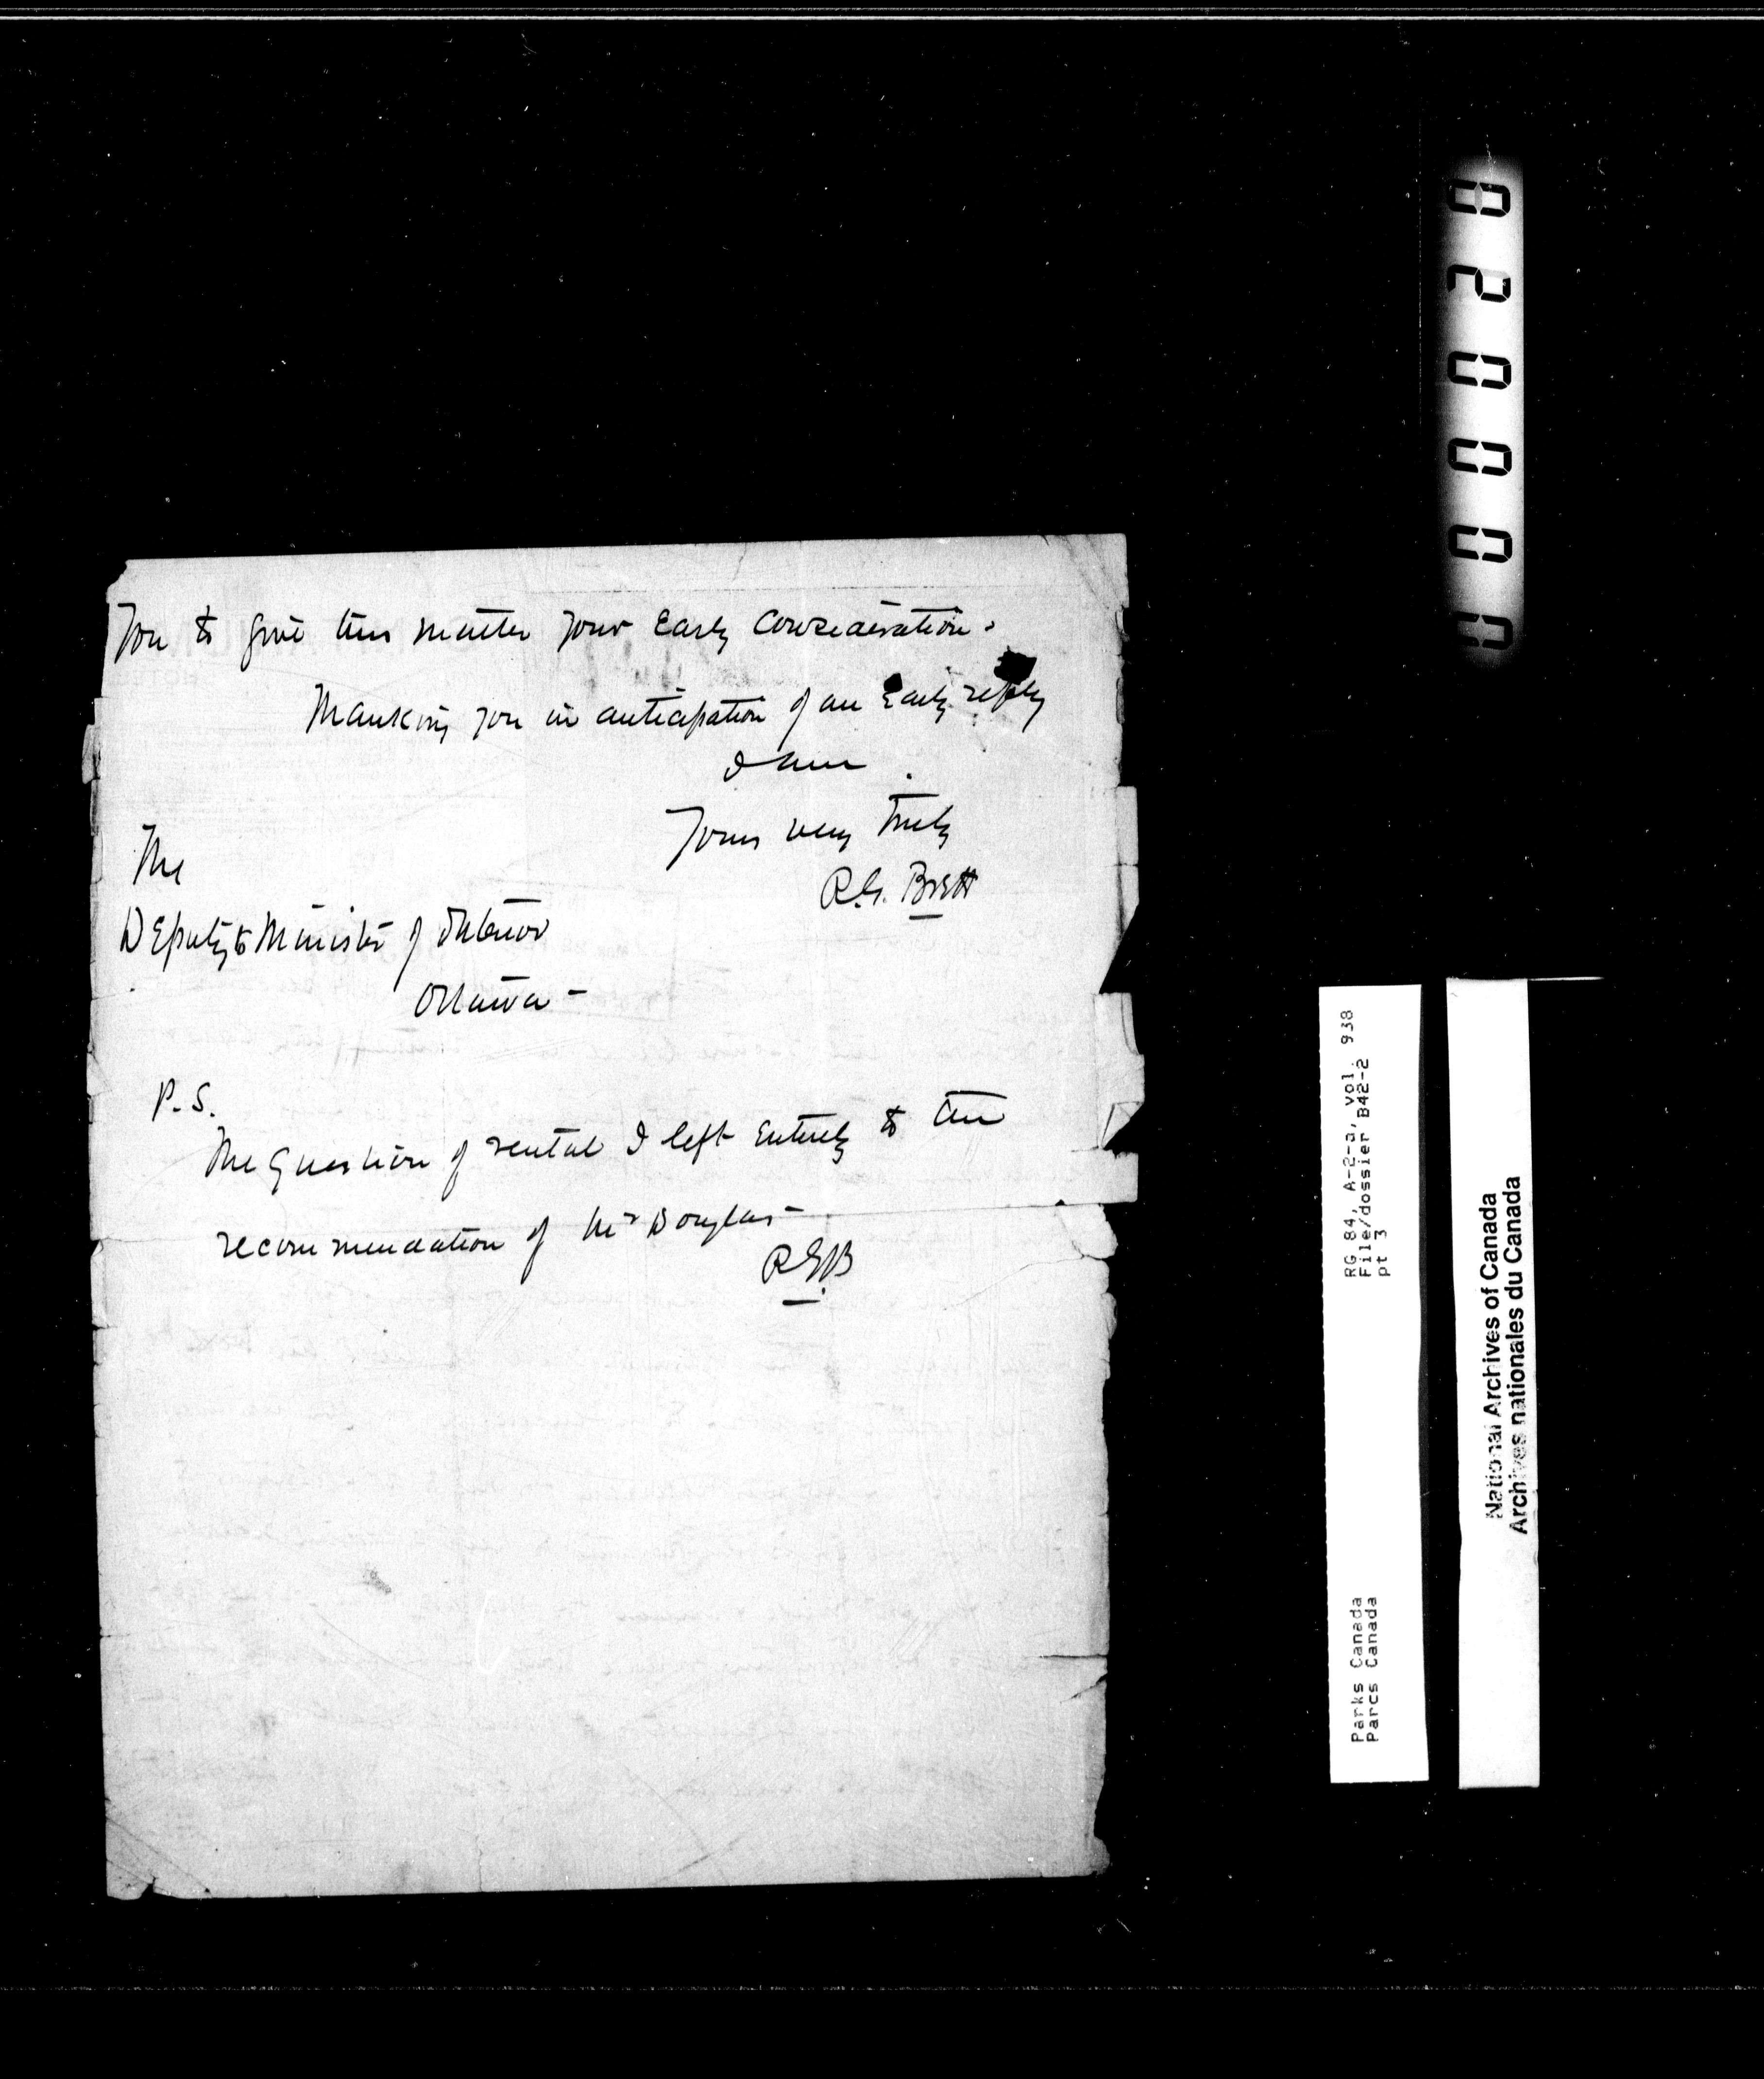 you to give this matter your Early Consideration.
Thanking you in anticipation of an Early reply
I am.
Yours very truly
R.G. Brett
The
Deputy Minister of Interior
Ottawa -
P.S.
The Question of rental I left Entirely to the
recommendation of Mr Douglas -
RGB
000020
RG 84, A-2-a, vol. 938
File/dossier B42-2
pt 3
Parks Canada
Parcs Canada
National Archives of Canada
Archives nationales du Canada